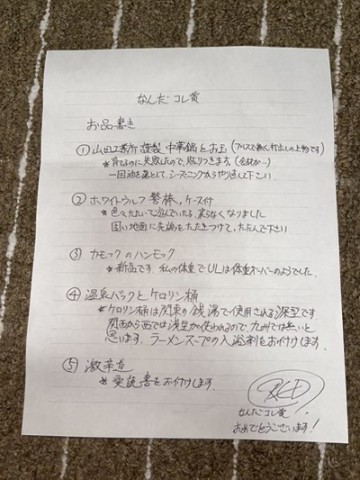 なんだ コレ賞
お品書き
① 山田工業所 謹製 中華鍋とお玉 (プレスで無く打出しの上物です)
＊育てるのに失敗したので、眠りつきます。
一回油を落として、シーズニングからやり直して下さい
② ホワイトウルフ 警棒、ケース付
＊色々たたいて遊んでいたら、戻らなくなりました
固い地面に先端をたたきつけて、たたんで下さい
③ カモックのハンモック
＊新品です 私の体重でULは体重オーバーのようでした。
④ 温泉バックとケロリン桶
＊ケロリン桶は関東の銭湯で使用される深型です
関西から西では浅型が使われるので、九州では無いと
思います。ラーメンスープの入浴剤をお付けします。
⑤ 激辛道
＊変態 書をお付けします。
なんだ コレ賞
おめでとうございます！